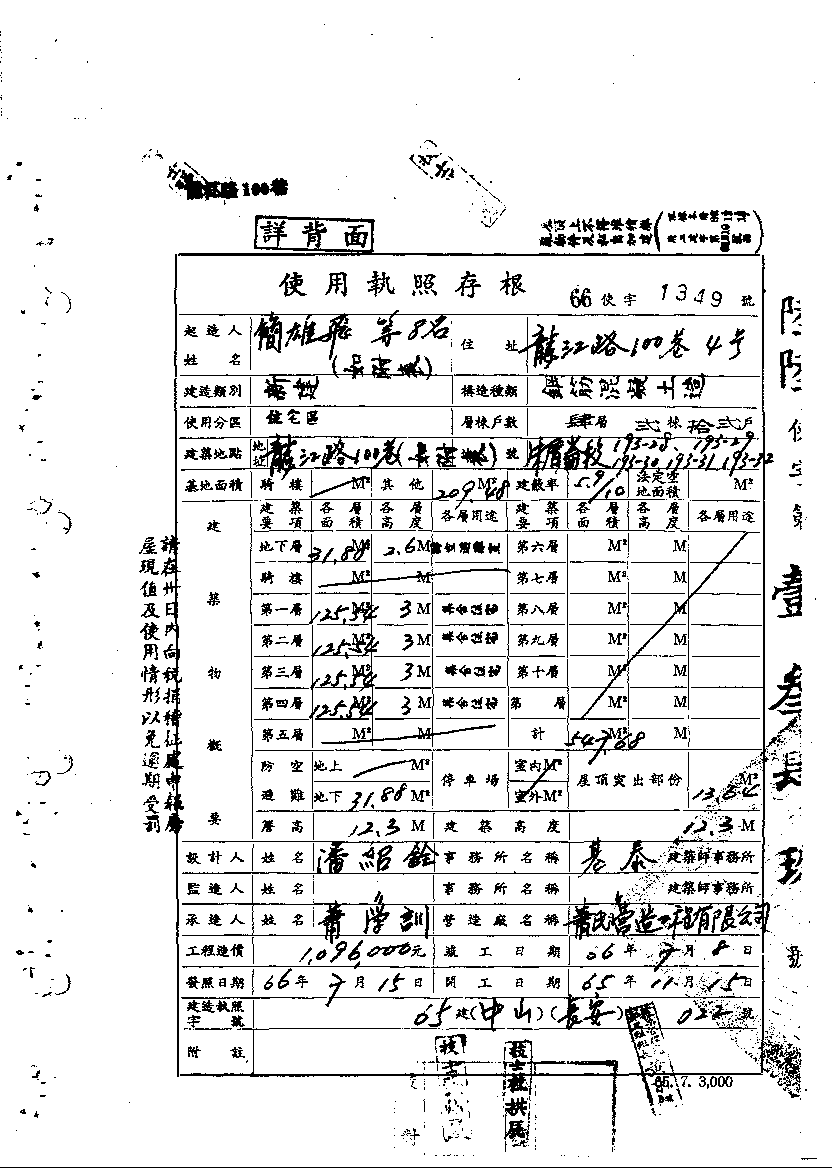 100巷
詳背面
使用執照存根
66 使字 1349 號
起造人姓名 簡雄飛 等8名 住址 龍江路100巷4号
建造類別 新建 構造種類 鋼筋混凝土造
使用分區 住宅區 層棟戶數 肆層 弍棟 拾弍戶
建築地點 地址 龍江路100巷 號 193-28、193-29
193-30 193-31 193-32
基地面積 騎樓 M² 其他 209.48 M² 建蔽率 5.9/10 法定空地面積 M²
建築物概要 建築要項 各層面積 各層高度 各層用途 建築要項 各層面積 各層高度 各層用途
地下層 31.88 M² 2.6 M 第六層 M² M
騎樓 M² M 第七層 M² M
第一層 125.54 M² 3 M 集合住宅 第八層 M² M
第二層 125.54 M² 3 M 集合住宅 第九層 M² M
第三層 125.54 M² 3 M 集合住宅 第十層 M² M
第四層 125.54 M² 3 M 集合住宅 第 層 M² M
第五層 M² M 計 M² M
防空避難 地上 M² 停車場 室內 M² 屋頂突出部份 13.64 M²
地下 31.88 M² 室外 M²
簷高 12.3 M 建築高度 12.3 M
設計人 姓名 潘紹銓 事務所名稱 基泰 建築師事務所
監造人 姓名 事務所名稱 建築師事務所
承造人 姓名 蕭學訓 營造廠名稱 蕭氏營造工程有限公司
工程造價 1,096,000元 竣工日期 66年7月8日
發照日期 66年7月15日 開工日期 65年11月15日
建造執照字號 65建(中山)(長安) 022 號
附註
65. 7. 3,000
請在卅日內向稅捐稽征處申報房
屋現值及使用情形以免逾期受罰